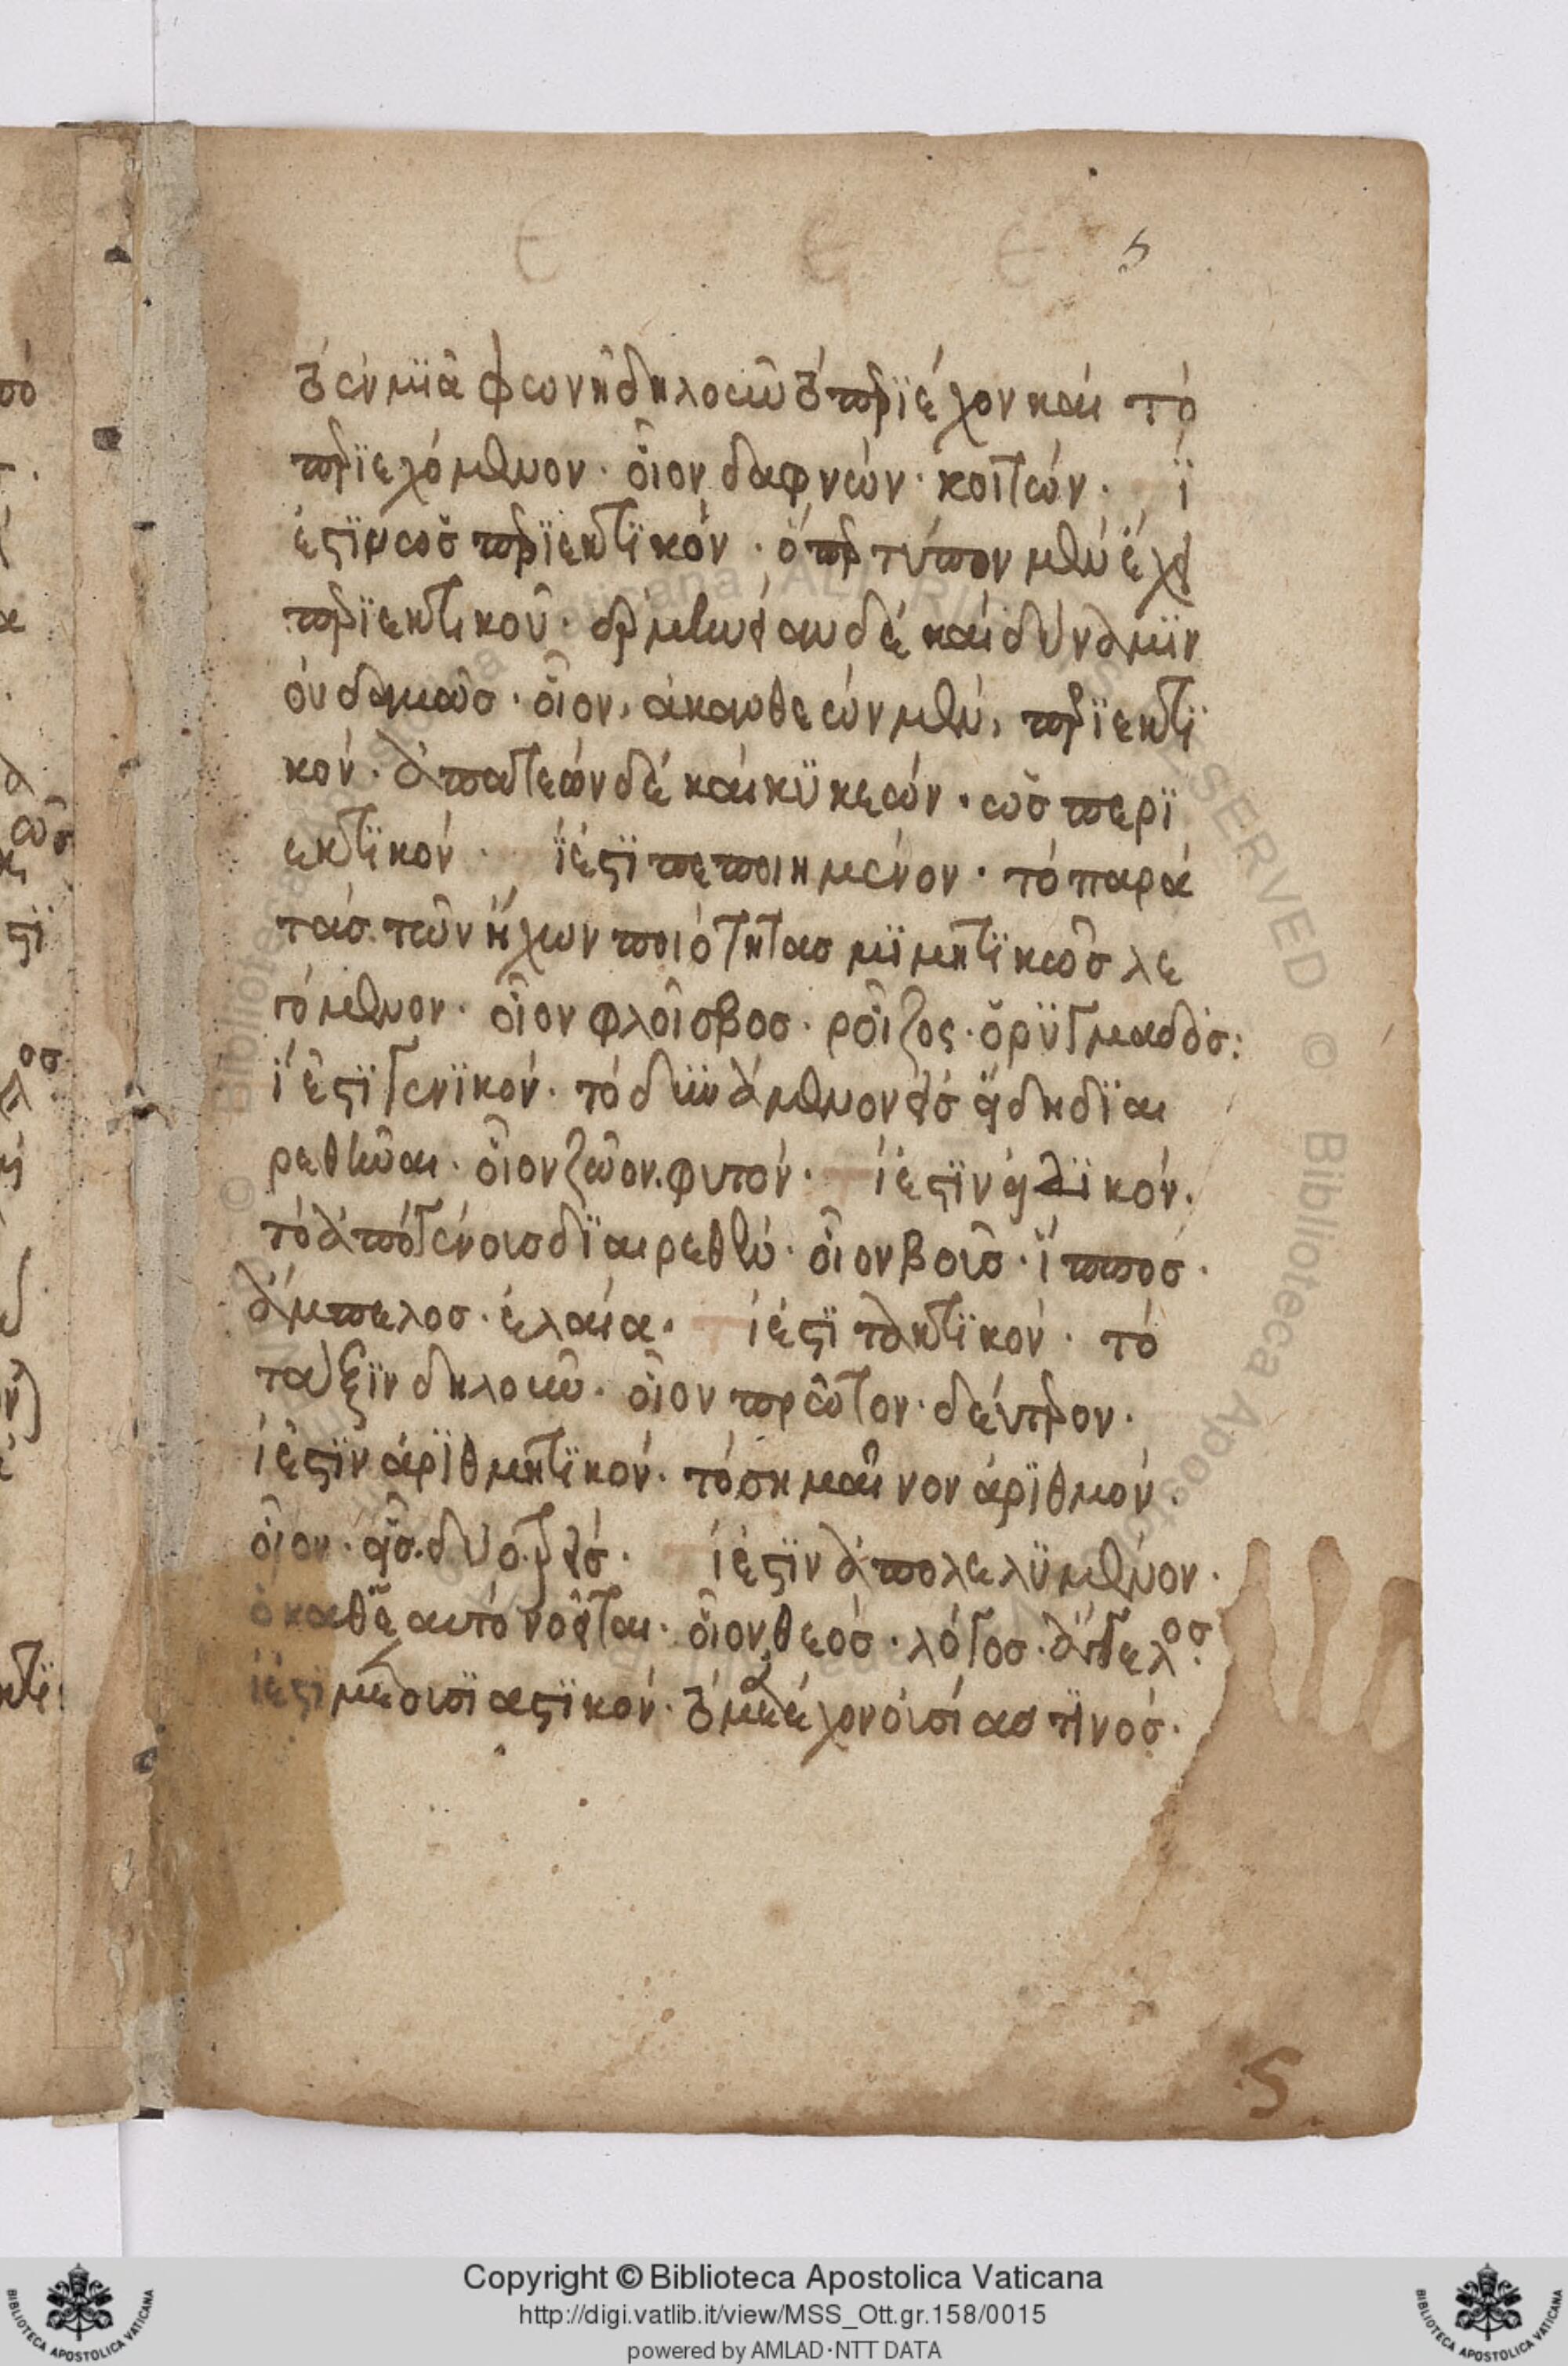 5
τὸ ἐν μϊᾶ φωνῆ δηλοῦν τὸ περϊέχον καὶ τὸ
περϊεχόμενον. οἷον δαφνών. κοιτών. ϊ
ἐστϊν ὡς περϊεκτϊκόν. ὅπερ τύπον μὲν ἔχει
περϊεκτικοῦ. ἑρμηνείαν δὲ καὶ δύναμϊν
οὐδαμῶς. οἷον, ἀκανθεών μὲν, περϊεκτϊ
κόν. ἀπατεών δὲ καὶ κϋκεών. ὡς περϊ
εκτϊκόν. ϊ ἐστϊ πεποιημένον. τὸ παρὰ
τὰς τῶν ἤχων ποιότητας μϊμητϊκῶς λε
γόμενον. οἷον φλοῖσβος. ῥοῖζος. ὀρϋγμαδός:
ϊ ἐστϊ γενϊκόν. τὸ δϋνάμενον εἰς εἴδη δϊαι
ρεθῆναι. οἷον ζῶον. φυτόν. ϊ ἐστϊν εἰδϊκόν.
τὸ ἀπὸ γένους δϊαιρεθέν. οἷον βοῦς. ἵππος.
ἄμπελος. ἐλαία. ϊ ἐστϊ τακτϊκόν. τὸ
τάξϊν δηλοῦν. οἷον πρῶτον. δεύτερον.
ϊ ἐστϊν ἀρϊθμητϊκόν. τὸ σημαῖνον ἀρϊθμόν.
οἷον. εἷς. δύο. τρεῖς. ϊ ἐστϊν ἀπολελϋμένον.
ὃ καθ' ἑαυτὸ νοεῖται. οἷον θεός. λόγος. ἄγγελος.
ϊ ἐστϊ μετουσϊαστϊκόν. τὸ μετέχον οὐσίας τϊνός.
5
Copyright © Biblioteca Apostolica Vaticana
http://digi.vatlib.it/view/MSS_Ott.gr.158/0015
powered by AMLAD·NTT DATA